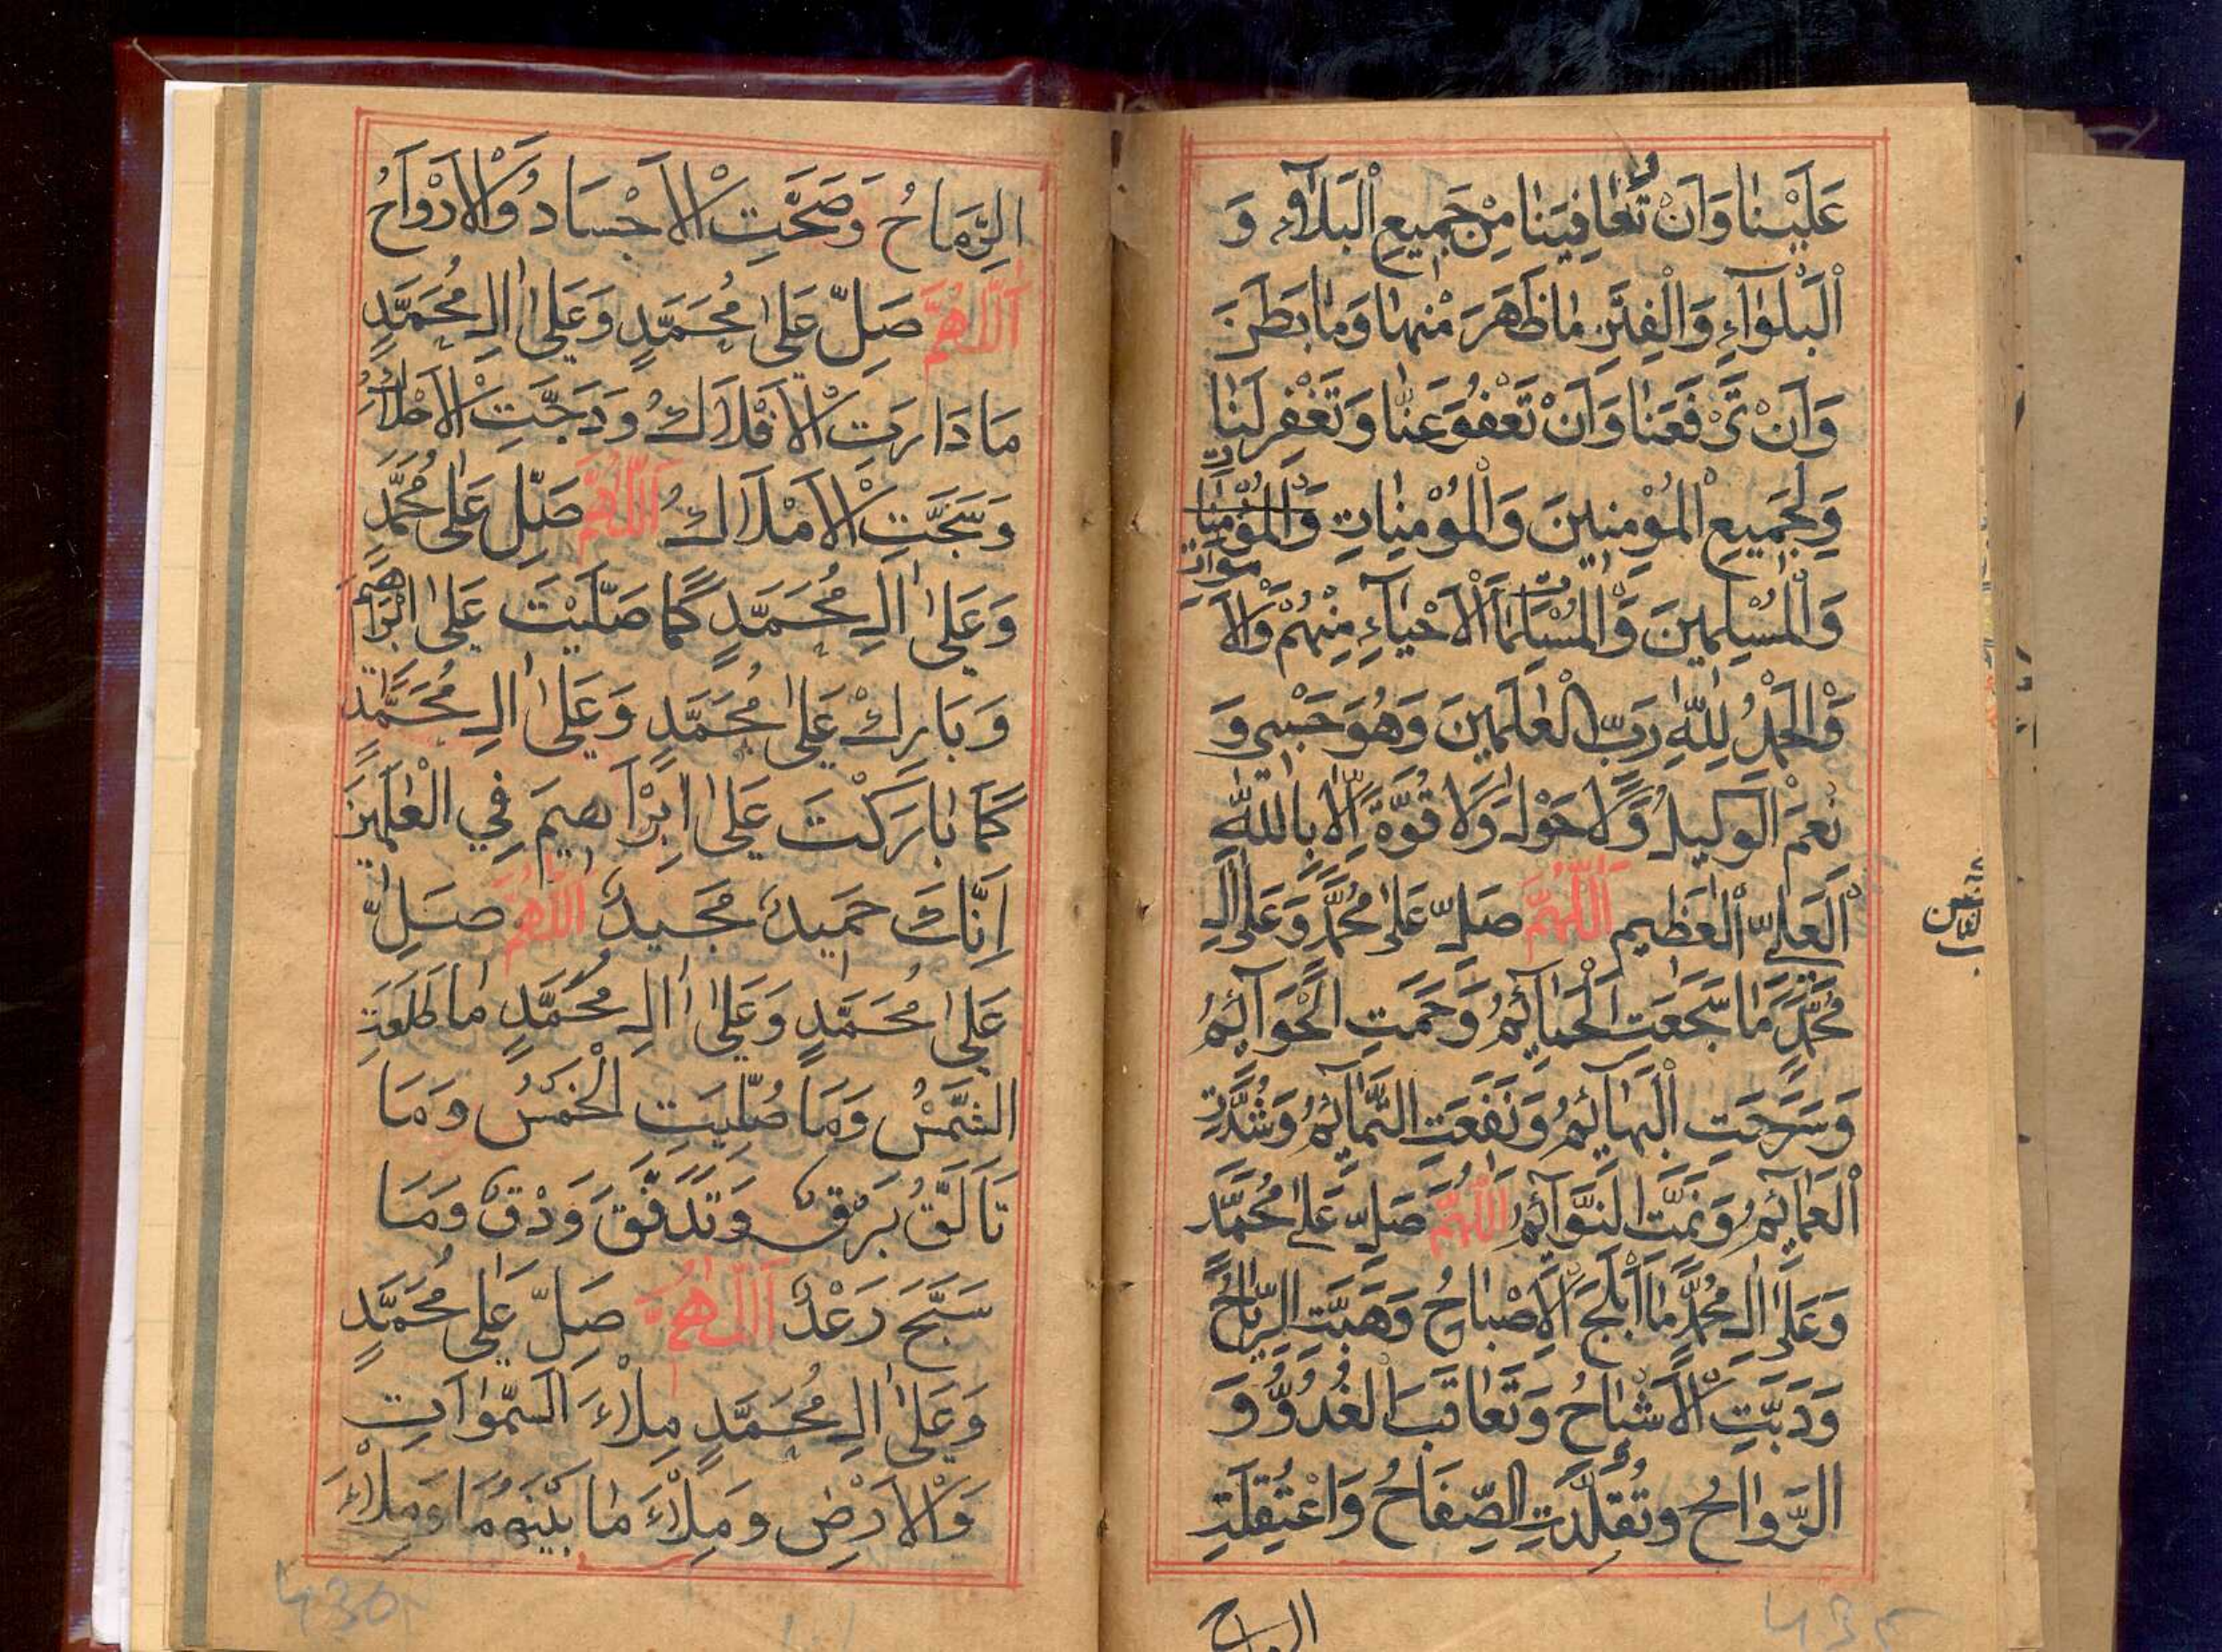 عَلَيْنَا وَاَنْ تُعَافِيَنَا مِنْ جَمِيعِ الْبَلَآءِ وَ
الْبَلْوَآءِ وَالْفِتَنِ مَا ظَهَرَ مِنْهَا وَمَا بَطَنَ
وَاَنْ تَرْفَعَنَا وَاَنْ تَعْفُوَ عَنَّا وَتَغْفِرَ لَنَا
وَلِجَمِيعِ الْمُؤْمِنِينَ وَالْمُؤْمِنَاتِ
وَالْمُسْلِمِينَ وَالْمُسْلِمَاتِ اَلْاَحْيَآءِ مِنْهُمْ وَالْاَمْوَاتِ
وَالْحَمْدُ لِلّٰهِ رَبِّ الْعٰلَمِينَ وَهُوَ حَسْبِي وَ
نِعْمَ الْوَكِيلُ وَلَا حَوْلَ وَلَا قُوَّةَ اِلَّا بِاللّٰهِ
الْعَلِيِّ الْعَظِيمِ اَللّٰهُمَّ صَلِّ عَلٰى مُحَمَّدٍ وَعَلٰى اٰلِ
مُحَمَّدٍ مَا سَجَعَتِ الْحَمَآئِمُ وَحَمَتِ الْحَوَآئِمُ
وَسَرَحَتِ الْبَهَآئِمُ وَنَفَعَتِ التَّمَآئِمُ وَشُدَّتِ
الْعَمَآئِمُ وَنَمَتِ النَّوَآئِمُ اَللّٰهُمَّ صَلِّ عَلٰى مُحَمَّدٍ
وَعَلٰى اٰلِ مُحَمَّدٍ مَا اَبْلَجَ الْاِصْبَاحُ وَهَبَّتِ الرِّيَاحُ
وَدَبَّتِ الْاَشْبَاحُ وَتَعَاقَبَ الْغُدُوُّ وَ
الرَّوَاحُ وَتُقُلِّدَتِ الصِّفَاحُ وَاعْتُقِلَتِ
الرماح
الرِّمَاحُ وَصَحَّتِ الْاَجْسَادُ وَالْاَرْوَاحُ
اَللّٰهُمَّ صَلِّ عَلٰى مُحَمَّدٍ وَعَلٰى اٰلِ مُحَمَّدٍ
مَا دَارَتِ الْاَفْلَاكُ وَدَجَتِ الْاَحْلَاكُ
وَسَبَّحَتِ الْاَمْلَاكُ اَللّٰهُمَّ صَلِّ عَلٰى مُحَمَّدٍ
وَعَلٰى اٰلِ مُحَمَّدٍ كَمَا صَلَّيْتَ عَلٰى اِبْرَاهِيمَ
وَبَارِكْ عَلٰى مُحَمَّدٍ وَعَلٰى اٰلِ مُحَمَّدٍ
كَمَا بَارَكْتَ عَلٰى اِبْرَاهِيمَ فِي الْعٰلَمِينَ
اِنَّكَ حَمِيدٌ مَجِيدٌ اَللّٰهُمَّ صَلِّ
عَلٰى مُحَمَّدٍ وَعَلٰى اٰلِ مُحَمَّدٍ مَا طَلَعَتِ
الشَّمْسُ وَمَا صُلِّيَتِ الْخَمْسُ وَمَا
تَاَلَّقَ بَرْقٌ وَتَدَفَّقَ وَدْقٌ وَمَا
سَبَّحَ رَعْدٌ اَللّٰهُمَّ صَلِّ عَلٰى مُحَمَّدٍ
وَعَلٰى اٰلِ مُحَمَّدٍ مِلْاءَ السَّمٰوَاتِ
وَالْاَرْضِ وَمِلْاءَ مَا بَيْنَهُمَا وَمِلْاءَ